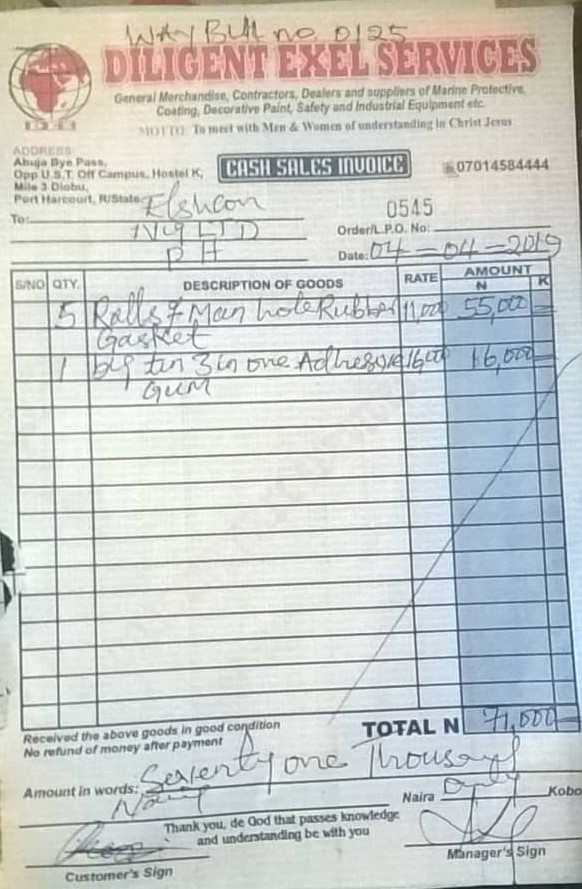 WAY BILL no 0125
DILIGENT EXEL SERVICES
General Merchandise, Contractors, Dealers and suppliers of Marine Protective,
Coating, Decorative Paint, Safety and Industrial Equipment etc.
MOTTO: To meet with Men & Women of understanding in Christ Jesus
ADDRESS:
Abuja Bye Pass,
Opp U.S.T. Off Campus, Hostel K,
Mile 3 Diobu,
Port Harcourt, R/State.
CASH SALES INVOICE
07014584444
To: Elshcon
NIG LTD
P H
0545
Order/L.P.O. No:
Date: 04-04-2019
S/NO QTY. DESCRIPTION OF GOODS RATE AMOUNT
N K
5 Rolls of Man hole Rubber 11,000 55,000 =
Gasket
1 big tin 3 in one Adhesive 16,000 16,000 =
GUM
Received the above goods in good condition
No refund of money after payment
TOTAL N 71,000 =
Amount in words: Seventy one Thousand
Naira Only
Naira Kobo
Thank you, de God that passes knowledge
and understanding be with you
Customer's Sign
Manager's Sign